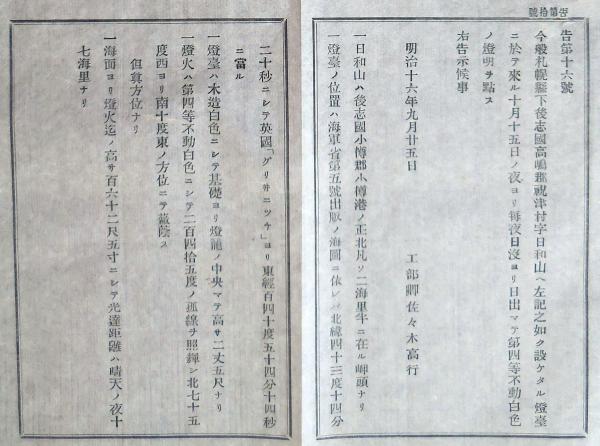 告第拾六號
告第十六號
今般札幌縣下後志國高嶋郡祝津村字日和山ヘ左記之如ク設ケタル燈臺
ニ於テ來ル十月十五日ノ夜ヨリ每夜日沒ヨリ日出マテ第四等不動白色
ノ燈明ヲ點ス
右告示候事
明治十六年九月廿五日
工部卿佐々木高行
一日和山ハ後志國小樽郡小樽港ノ正北凡ソ二海里半ニ在ル岬頭ナリ
一燈臺ノ位置ハ海軍省第五號出版ノ海圖ニ依レハ北緯四十三度十四分
二十秒ニシテ英國「グリ井ニツチ」ヨリ東經百四十度五十四分十四秒
ニ當ル
一燈臺ハ木造白色ニシテ基礎ヨリ燈籠ノ中央マテ高サ二丈五尺ナリ
一燈火ハ第四等不動白色ニシテ二百四拾五度ノ孤線ヲ照輝シ北七十五
度西ヨリ南十度東ノ方位ニテ蔽陰ス
但眞方位ナリ
一海面ヨリ燈火迄ノ高サ百六十二尺五寸ニシテ光達距離ハ晴天ノ夜十
七海里ナリ